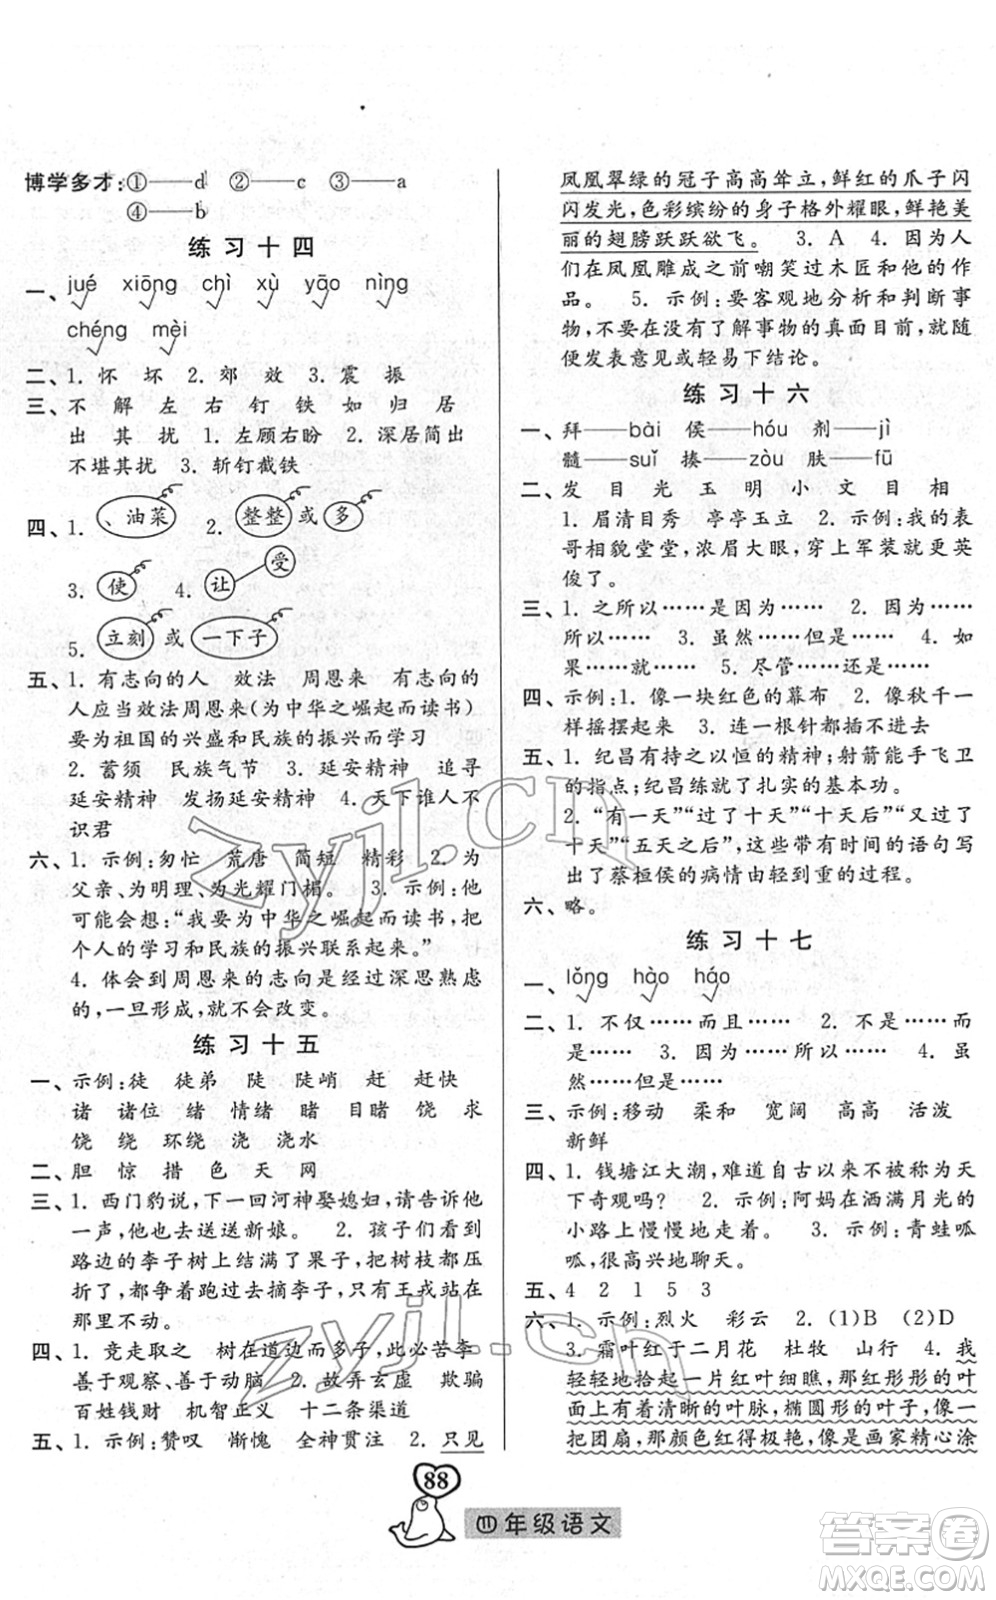 博学多才:①——d ②——c ③——a
④——b
练习十四
一、jué xiōng chì xù yāo nìng
chéng mèi
二、1. 怀 坏 2. 郊 效 3. 震 振
三、不 解 左 右 钉 铁 如 归 居
出 其 扰 1. 左顾右盼 2. 深居简出
不堪其扰 3. 斩钉截铁
四、1. 、油菜 2. 整整 或 多
3. 使 4. 让 受
5. 立刻 或 一下子
五、1. 有志向的人 效法 周恩来 有志向的
人应当效法周恩来(为中华之崛起而读书)
要为祖国的兴盛和民族的振兴而学习
2. 蓄须 民族气节 3. 延安精神 追寻
延安精神 发扬延安精神 4. 天下谁人不
识君
六、1. 示例:匆忙 荒唐 简短 精彩 2. 为
父亲、为明理、为光耀门楣。 3. 示例:他
可能会想:“我要为中华之崛起而读书,把
个人的学习和民族的振兴联系起来。”
4. 体会到周恩来的志向是经过深思熟虑
的,一旦形成,就不会改变。
练习十五
一、示例:徒 徒弟 陡 陡峭 赶 赶快
诸 诸位 绪 情绪 睹 目睹 饶 求
饶 绕 环绕 浇 浇水
二、胆 惊 措 色 天 网
三、1. 西门豹说,下一回河神娶媳妇,请告诉他
一声,他也去送送新娘。 2. 孩子们看到
路边的李子树上结满了果子,把树枝都压
折了,都争着跑过去摘李子,只有王戎站在
那里不动。
四、1. 竞走取之 树在道边而多子,此必苦李
善于观察、善于动脑 2. 故弄玄虚 欺骗
百姓钱财 机智正义 十二条渠道
五、1. 示例:赞叹 惭愧 全神贯注 2. 只见
凤凰翠绿的冠子高高耸立,鲜红的爪子闪
闪发光,色彩缤纷的身子格外耀眼,鲜艳美
丽的翅膀跃跃欲飞。 3. A 4. 因为人
们在凤凰雕成之前嘲笑过木匠和他的作
品。 5. 示例:要客观地分析和判断事
物,不要在没有了解事物的真面目前,就随
便发表意见或轻易下结论。
练习十六
一、拜——bài 侯——hóu 剂——jì
髓——suǐ 揍——zòu 肤——fū
二、发 目 光 玉 明 小 文 目 相
1. 眉清目秀 亭亭玉立 2. 示例:我的表
哥相貌堂堂,浓眉大眼,穿上军装就更英
俊了。
三、1. 之所以……是因为…… 2. 因为……
所以…… 3. 虽然……但是…… 4. 如
果……就…… 5. 尽管……还是……
四、示例:1. 像一块红色的幕布 2. 像秋千一
样摇摆起来 3. 连一根针都插不进去
五、1. 纪昌有持之以恒的精神;射箭能手飞卫
的指点;纪昌练就了扎实的基本功。
2. “有一天”“过了十天”“十天后”“又过了
十天”“五天之后”,这些带有时间的语句写
出了蔡桓侯的病情由轻到重的过程。
六、略。
练习十七
一、lǒng hào háo
二、1. 不仅……而且…… 2. 不是……而
是…… 3. 因为……所以…… 4. 虽
然……但是……
三、示例:移动 柔和 宽阔 高高 活泼
新鲜
四、1. 钱塘江大潮,难道自古以来不被称为天
下奇观吗? 2. 示例:阿妈在洒满月光的
小路上慢慢地走着。 3. 示例:青蛙呱
呱,很高兴地聊天。
五、4 2 1 5 3
六、1. 示例:烈火 彩云 2. (1)B (2)D
3. 霜叶红于二月花 杜牧 山行 4. 我
轻轻拾起一片红叶细瞧,那红彤彤的叶
面上有着清晰的叶脉,椭圆形的叶子,像
一把团扇,那颜色红得极艳,像是画家精心涂
88
四年级语文
zyjl.cn
zyjl.cn
答案圈
MXQE.COM